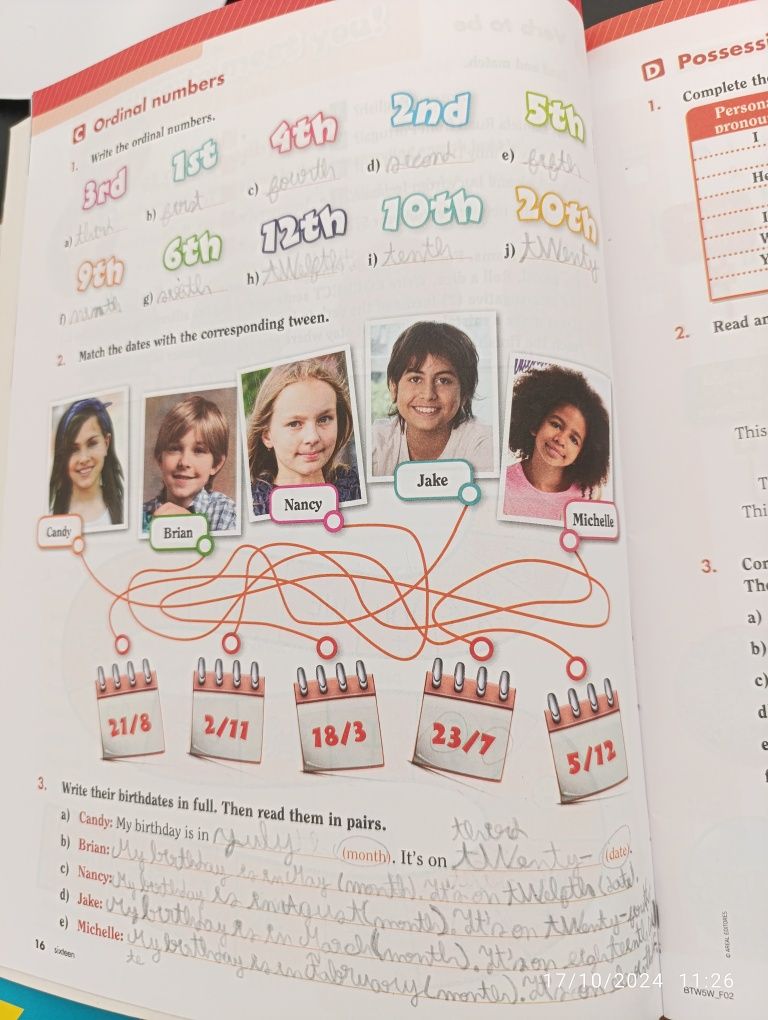 C Ordinal numbers
1. Write the ordinal numbers.
3rd 1st 4th 2nd 5th
a) third b) first c) fourth d) second e) fifth
9th 6th 12th 10th 20th
g) sixth h) twelfth i) tenth j) tWenty
2. Match the dates with the corresponding tween.
Candy Brian Nancy Jake Michelle
21/8 2/11 18/3 23/7 5/12
3. Write their birthdates in full. Then read them in pairs.
a) Candy: My birthday is in July (month). It's on tWenty- (date).
b) Brian: My birthday is in May (month). It's on tWelfth (date).
c) Nancy: My birthday is in (month). It's on tWenty-
d) Jake: My birthday is in March (month). It's on
e) Michelle: My birthday is in (month). It's on
16 sixteen
D Possessi
1. Complete the
Persona
pronou
I
He
I
W
Y
2. Read an
This
T
Thi
3. Cor
The
a)
b)
c)
d
e
f
© AREAL EDITORES
BTW5W_F02
17/10/2024 11:26